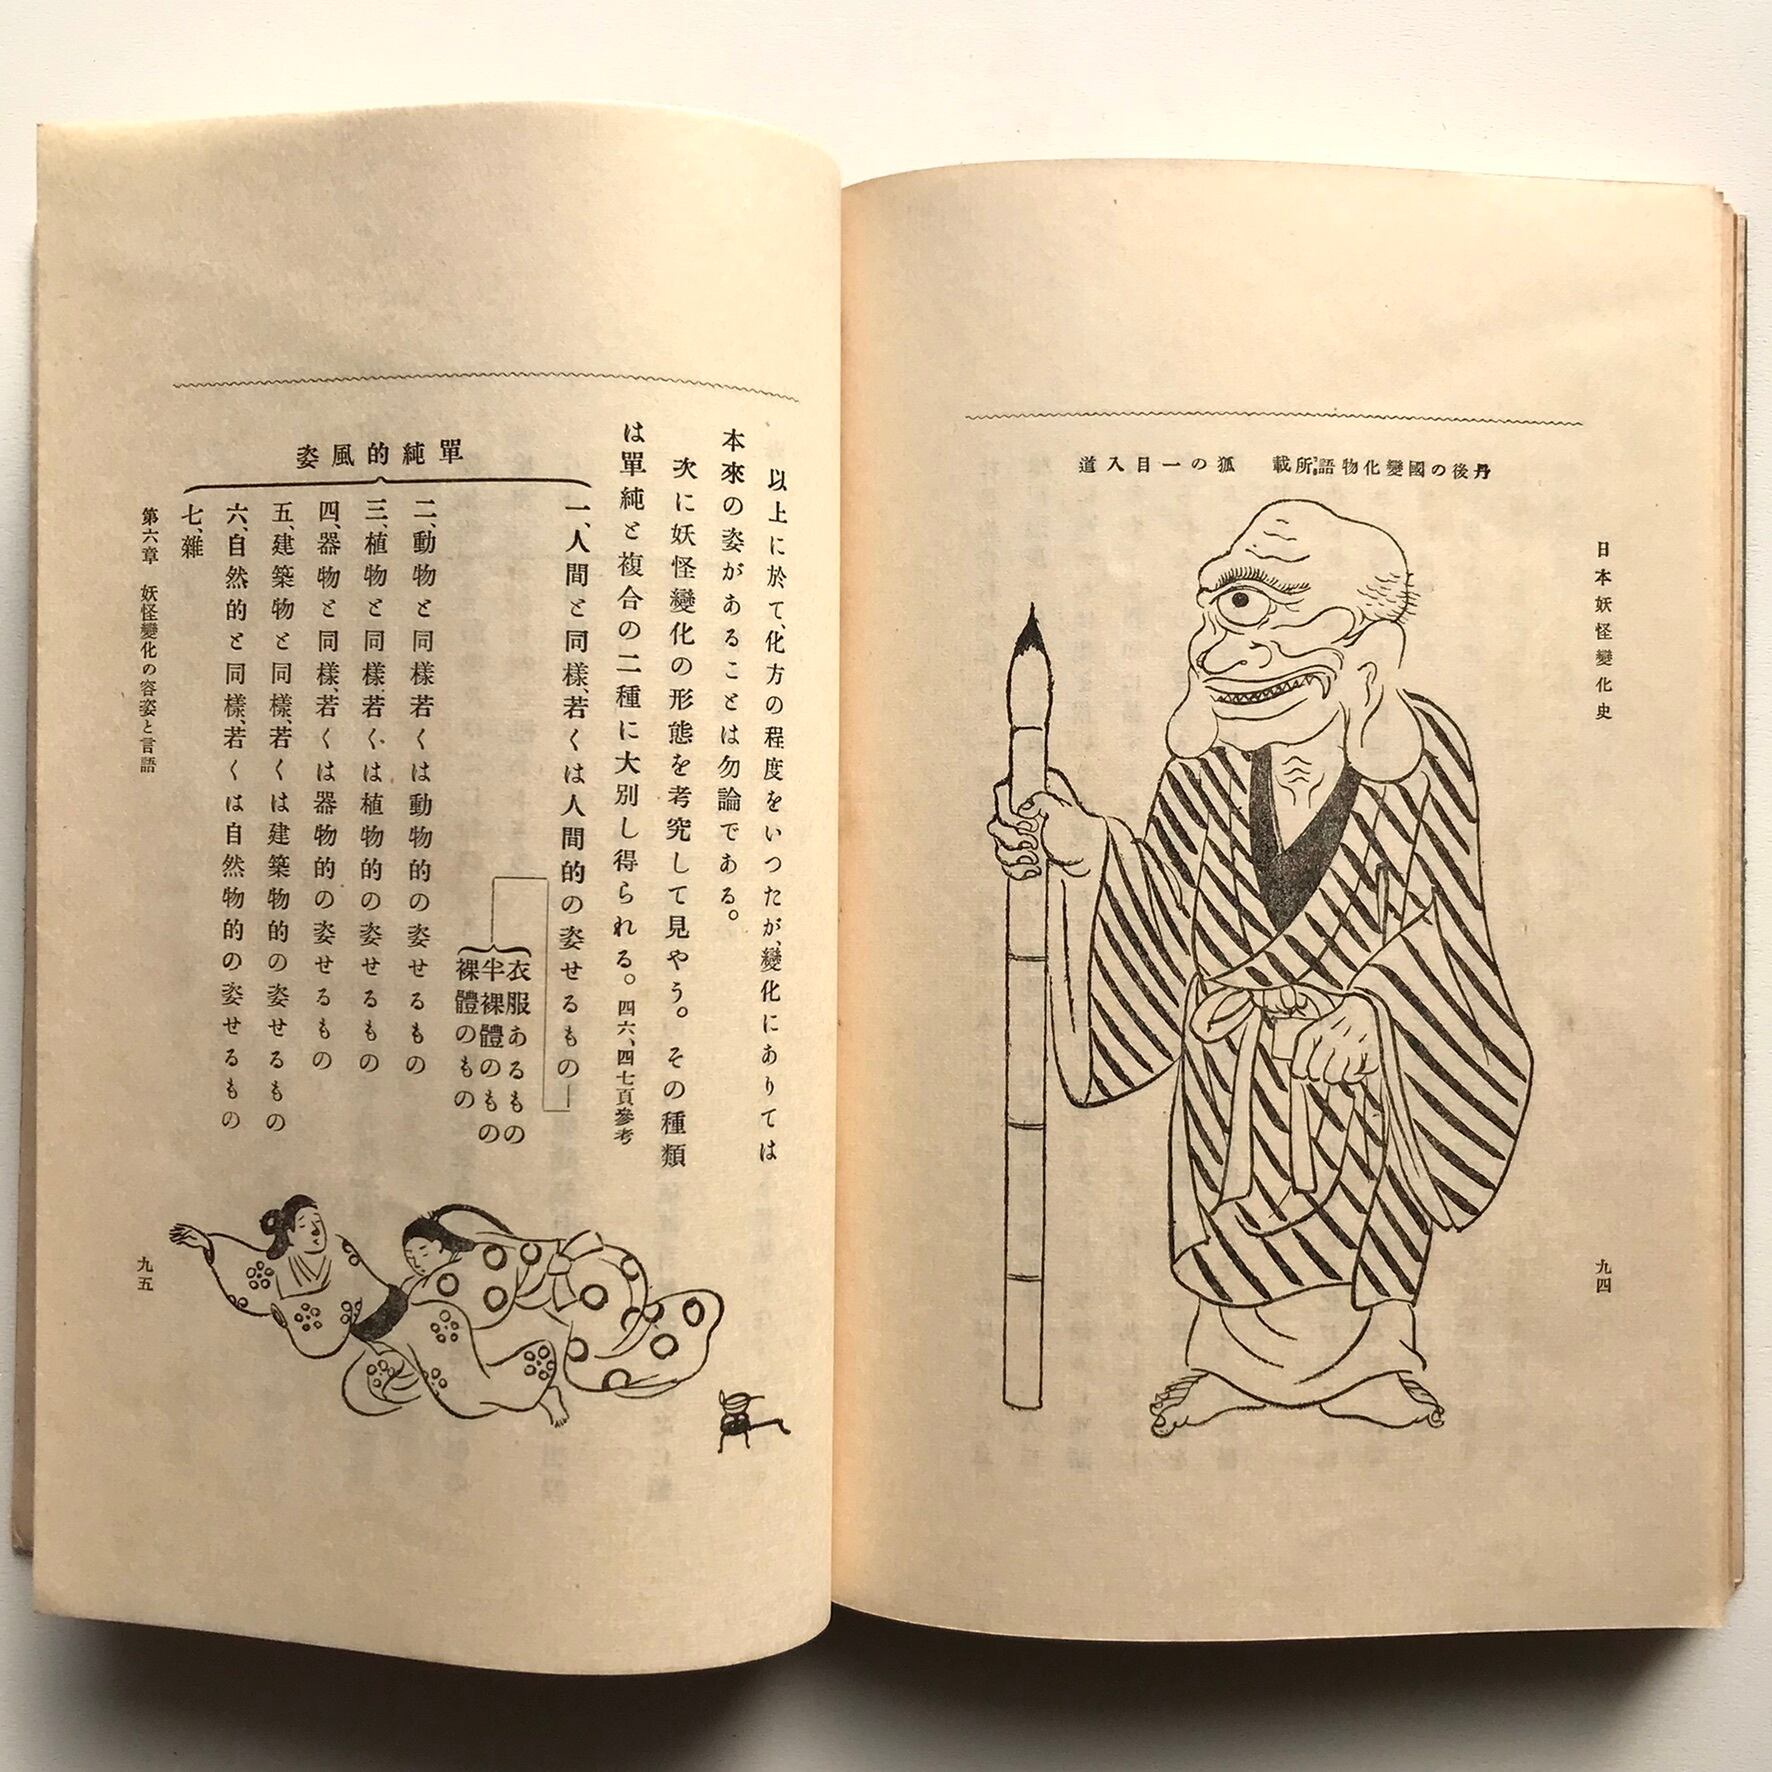 日本妖怪變化史
丹後の國變化物語所載　狐の一目入道
九四
以上に於て、化方の程度をいつたが、變化にありては
本來の姿があることは勿論である。
次に妖怪變化の形態を考究して見やう。その種類
は單純と複合の二種に大別し得られる。四六、四七頁參考
單純的風姿
一、人間と同樣、若くは人間的の姿せるもの
衣服あるもの
半裸體のもの
裸體のもの
二、動物と同樣若くは動物的の姿せるもの
三、植物と同樣、若くは植物的の姿せるもの
四、器物と同樣、若くは器物的の姿せるもの
五、建築物と同樣、若くは建築物的の姿せるもの
六、自然的と同樣、若くは自然物的の姿せるもの
七、雜
第六章　妖怪變化の容姿と言語
九五